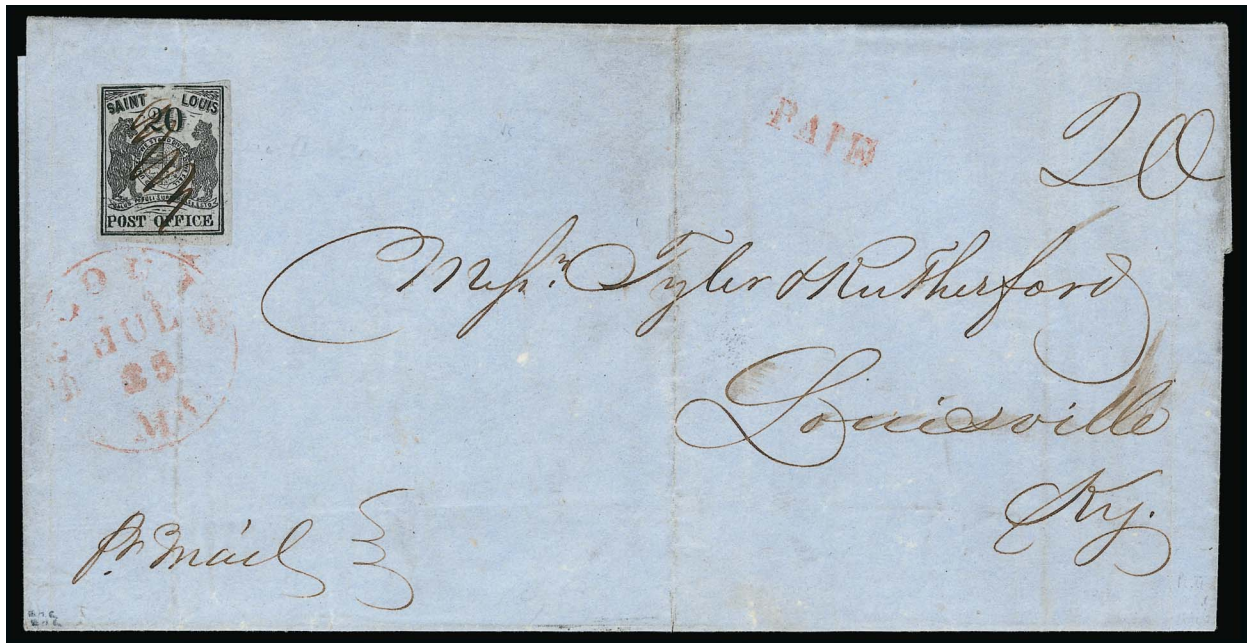 SAINT LOUIS
20
POST OFFICE
PAID
20
Messrs. Tyler & Rutherford
Louisville
Ky.
JUL
pr Mail